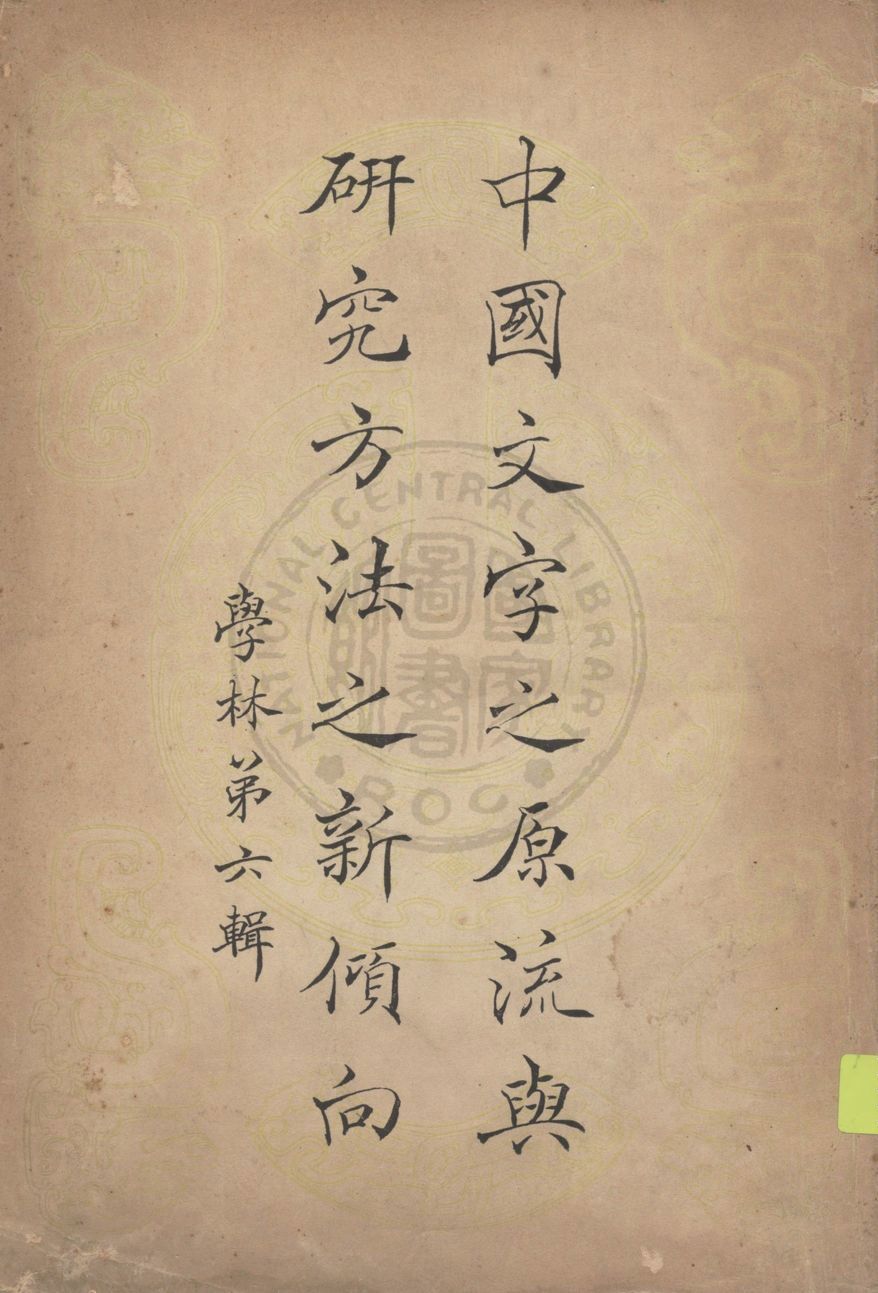 中國文字之原流與
研究方法之新傾向
學林第六輯
NATIONAL CENTRAL LIBRARY
ROC
國家圖書館